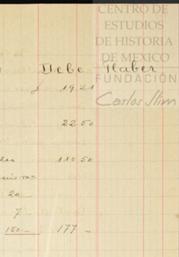 CENTRO DE
ESTUDIOS
DE HISTORIA
DE MEXICO
FUNDACIÓN
Carlos Slim
Debe Haber
19 21
22 50
110 50
20
7
150 — 177 —